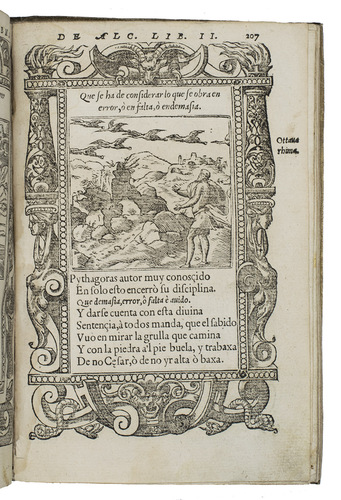 DE ALC. LIB. II.
207
Que se ha de considerar lo que se obra en
error, ò en falta, ò en demasia.
Ottaua
rhima.
Pythagoras autor muy conoscido
En solo esto encerrò su disciplina.
Que demasia, error, ò falta è auido.
Y darse cuenta con esta diuina
Sentençia, à todos manda, que el sabido
Vuo en mirar la grulla que camina
Y con la piedra àl pie buela, y trabaxa
De no Cesar, ò de no yr alta ò baxa.